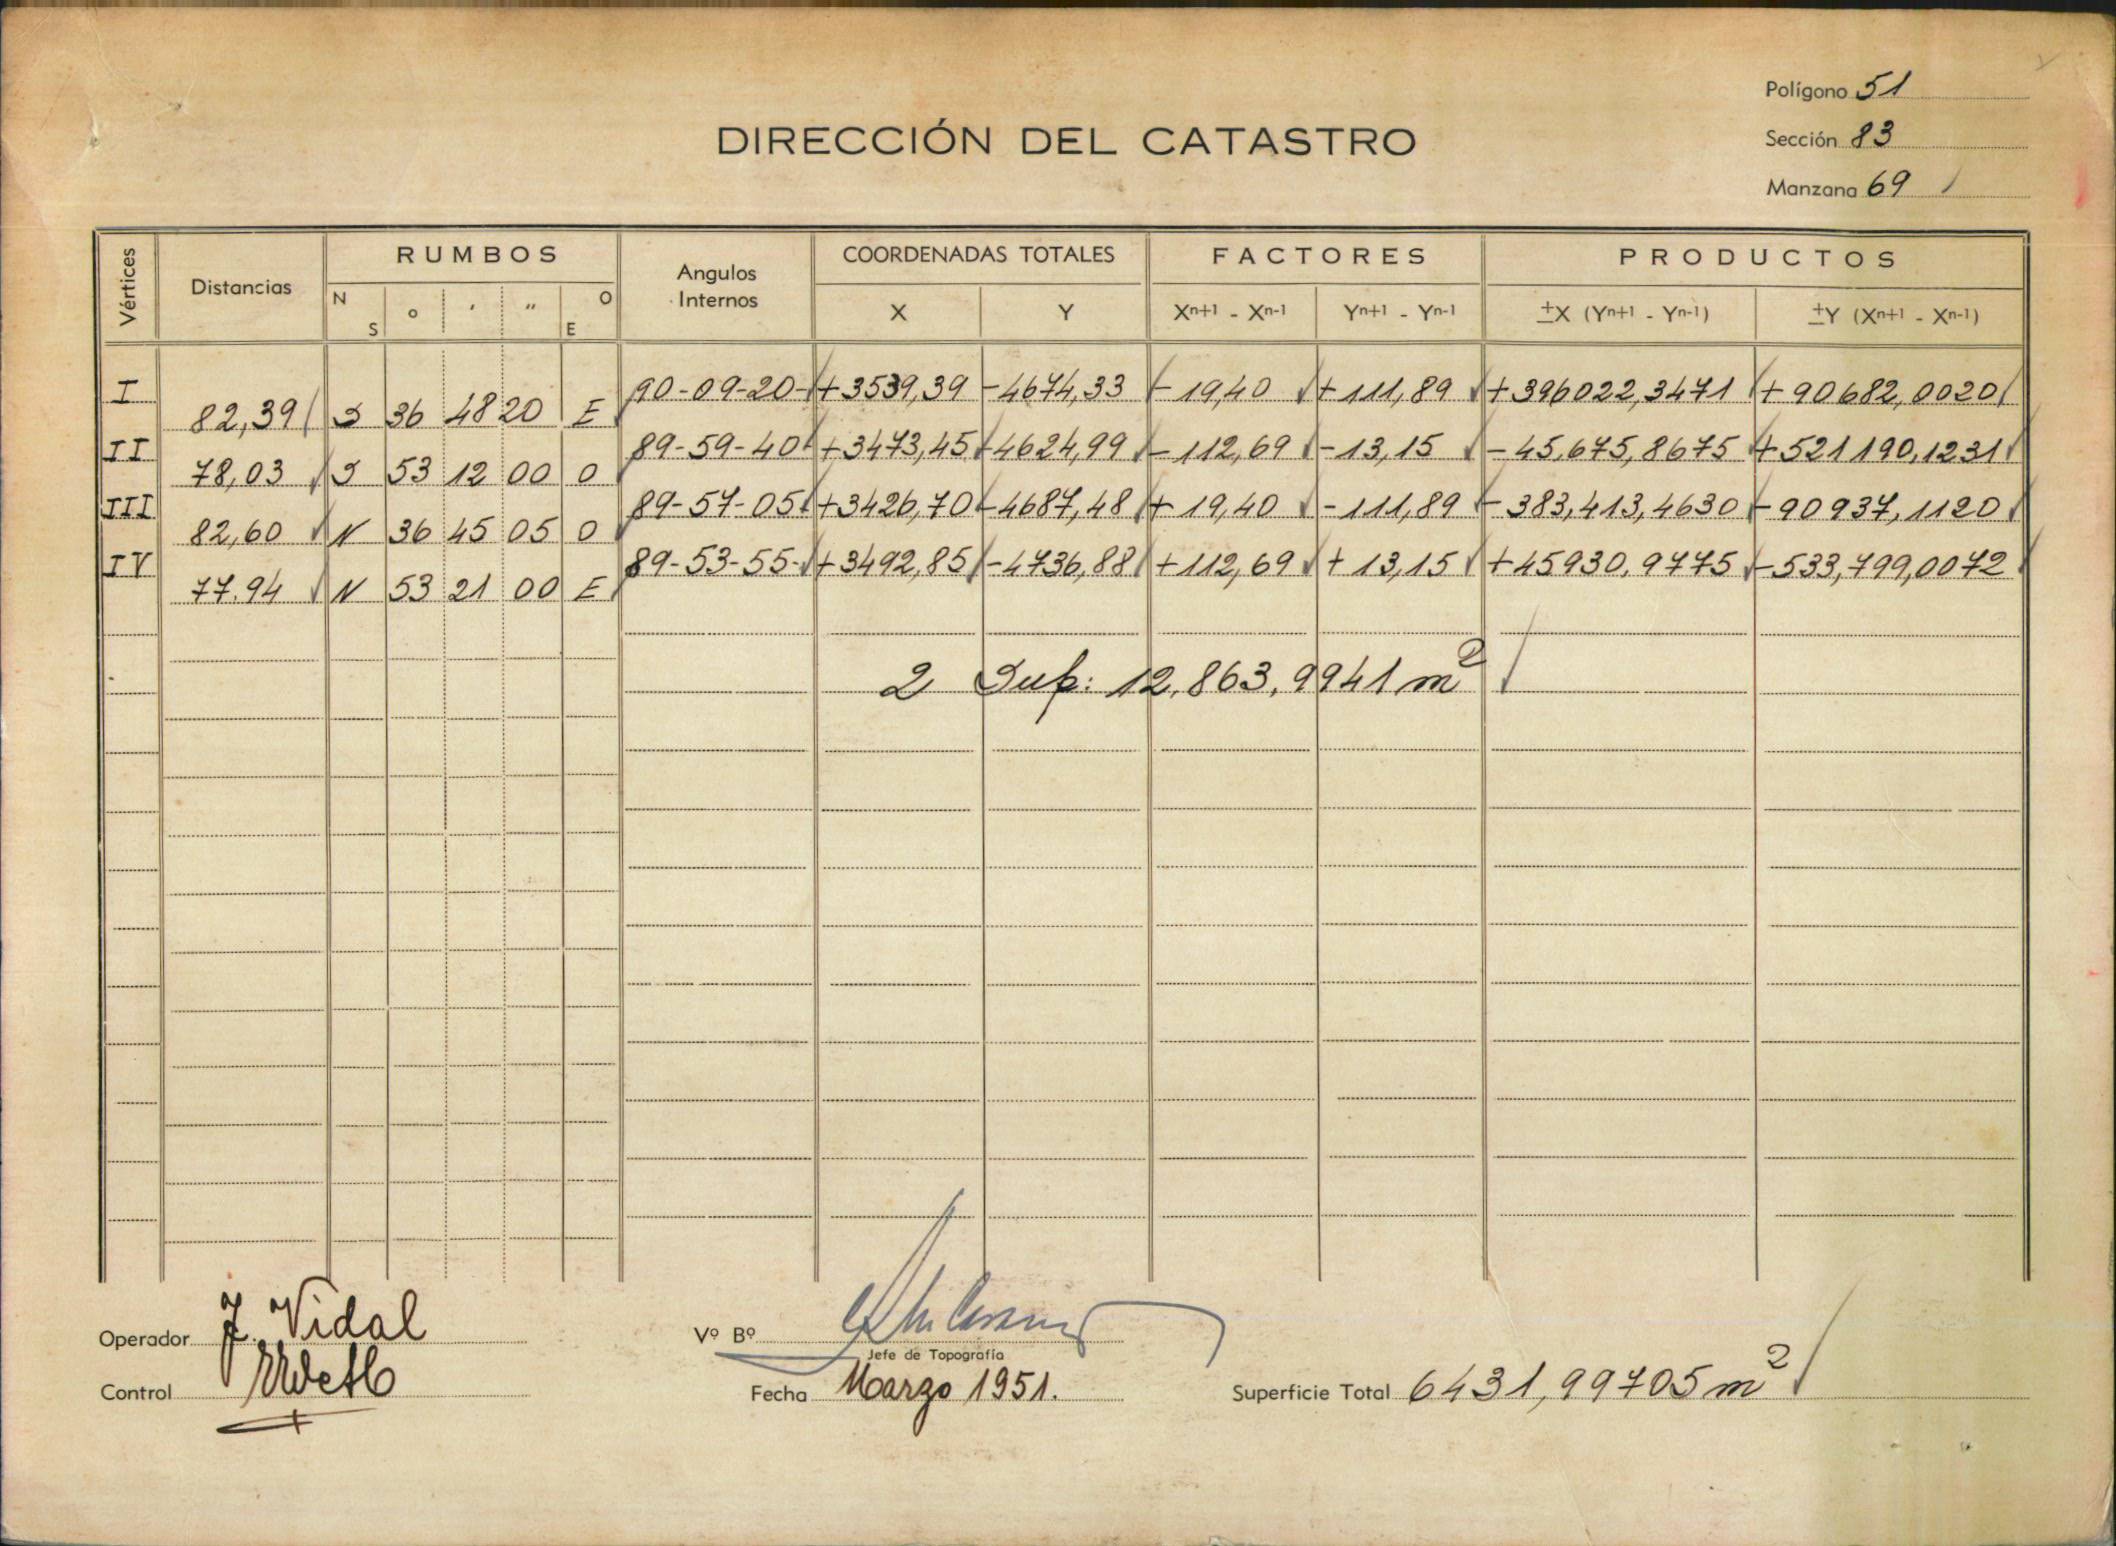 Polígono 51
DIRECCIÓN DEL CATASTRO
Sección 83
Manzana 69
Vértices Distancias RUMBOS Angulos Internos COORDENADAS TOTALES FACTORES PRODUCTOS
N S o ′ ″ O E X Y Xn+1 - Xn-1 Yn+1 - Yn-1 ±X (Yn+1 - Yn-1) ±Y (Xn+1 - Xn-1)
I 90-09-20- +3539,39 -4674,33 -19,40 +111,89 +396022,3471 +90682,0020
82,39 S 36 48 20 E
II 89-59-40 +3473,45 -4624,99 -112,69 -13,15 -45,675,8675 +521190,1231
78,03 S 53 12 00 O
III 89-57-05 +3426,70 -4687,48 +19,40 -111,89 -383,413,4630 -90937,1120
82,60 N 36 45 05 O
IV 89-53-55- +3492,85 -4736,88 +112,69 +13,15 +45930,9775 -533,799,0072
77.94 N 53 21 00 E
2 Sup: 12,863,9941 m²
Operador J. Vidal
Vº Bº
Jefe de Topografía
Control
Fecha Marzo 1951.
Superficie Total 6431,99705 m²